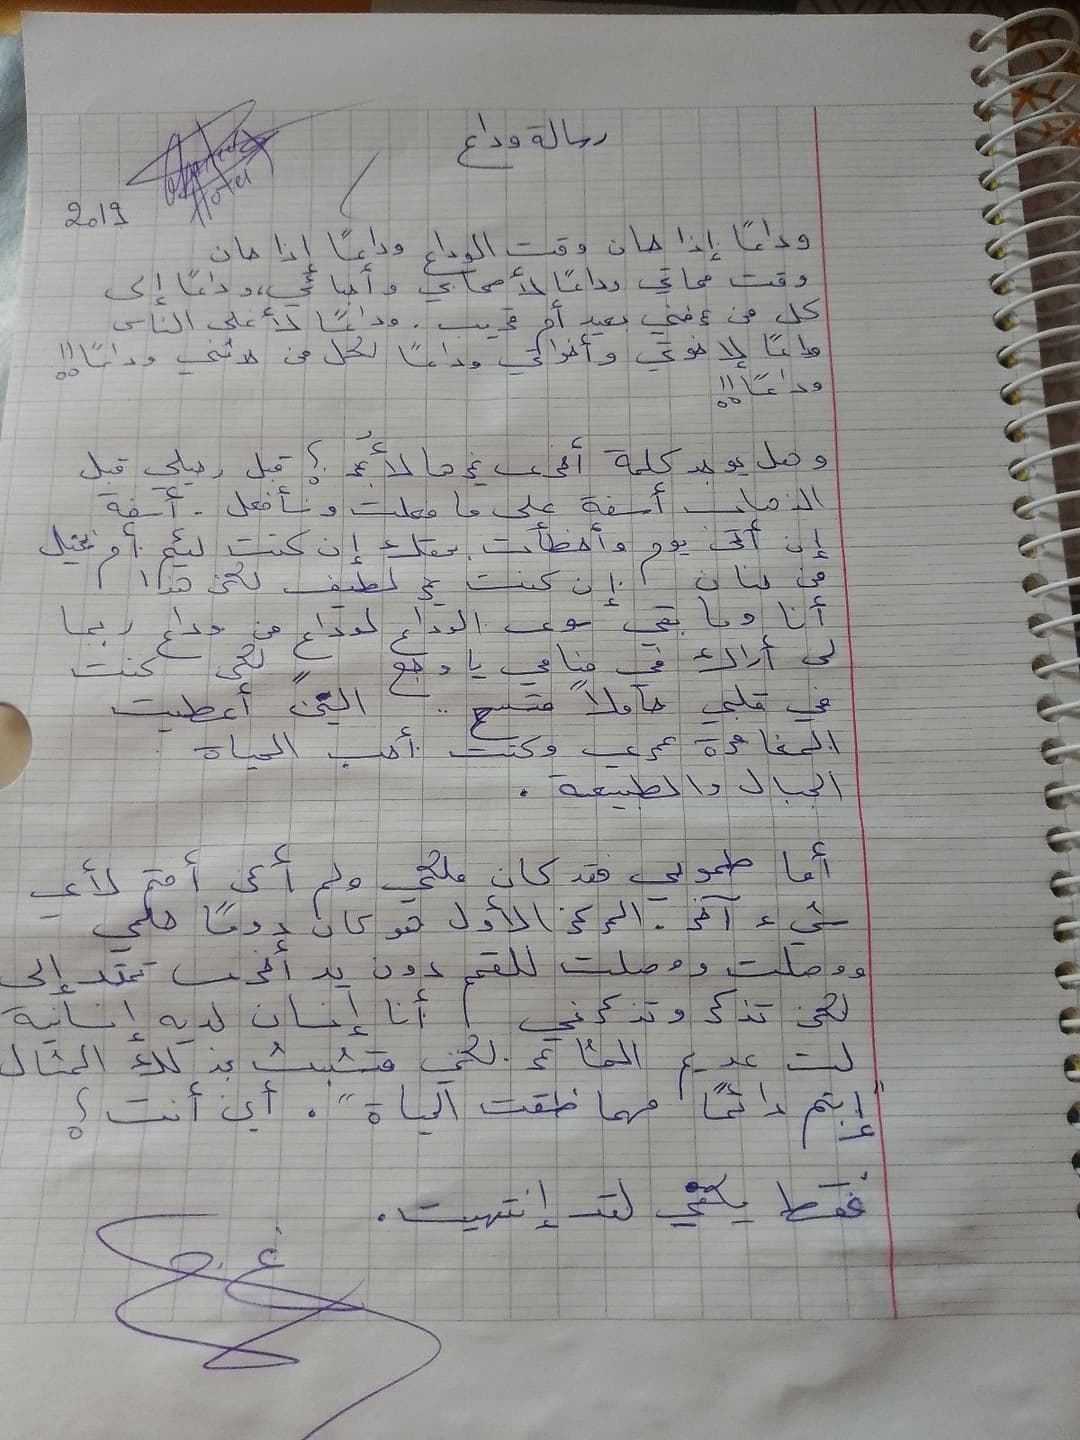 رسالة وداع
2019
وداعًا إذا حان وقت الوداع وداعًا إذا حان
وقت مماتي وداعًا لأصحابي وأحبائي، وداعًا إلى
كل من عرفني بعيد أم قريب. وداعًا لأغلى الناس
وداعًا لإخوتي وأخواتي وداعًا لكل من حدثني وداعًا!!
وداعًا!!
وهل يوجد كلمة أخرى غير ما لا أُعبر؟ قبل رحيلي قبل
الذهاب أسفة على ما فعلت وسأفعل. أسفة
إن أتى يوم وأخطأت بحقك إن كنت لئيم أم بخيل
من حنان إن كنت غير لطيف لكن هذا
أنا وما بقى سوى الوداع لوداع من وداع ربما
لن أراك في منامي يا وجع لكن كنت
في قلبي حاملاً .. أعطيت
المغامرة عمري وكنت أحب الحياة
الجبال والطبيعة.
أما طموحي فقد كان ملكي ولم أكن أهتم لأي
شيء آخر. المركز الأول هو كان دومًا حلمي
ووصلت ووصلت للقمم دون يد أخرى تمتد إلى
لكن تذكر وتذكرني أنا إنسان لديه إنسانية
لست عديم المشاعر لكني متشبث بذلك المثال
"إبتسم دائمًا مهما ضقت الحياة". أين أنت؟
فقط يكفي لقد إنتهيت.